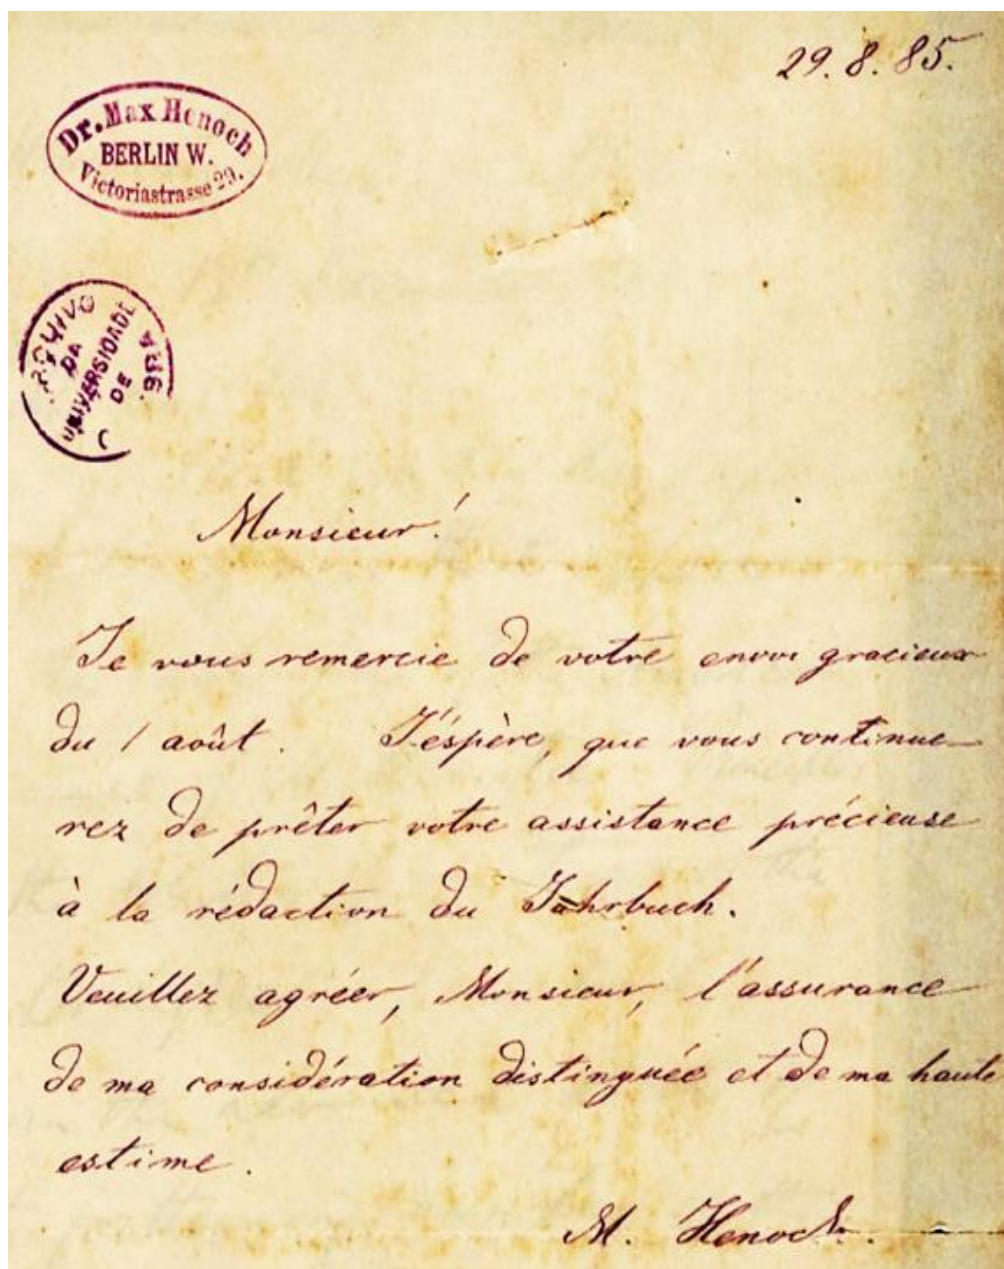 29. 8. 85.
Dr. Max Henoch
BERLIN W.
Victoriastrasse 29.
DA
UNIVERSIDADE
DE
Monsieur!
Je vous remercie de votre envoi gracieux
du 1 août. J'éspère, que vous continue-
rez de prêter votre assistance précieuse
à la rédaction du Jahrbuch.
Veuillez agréer, Monsieur, l'assurance
de ma considération distinguée et de ma haute
estime.
M. Henoch.